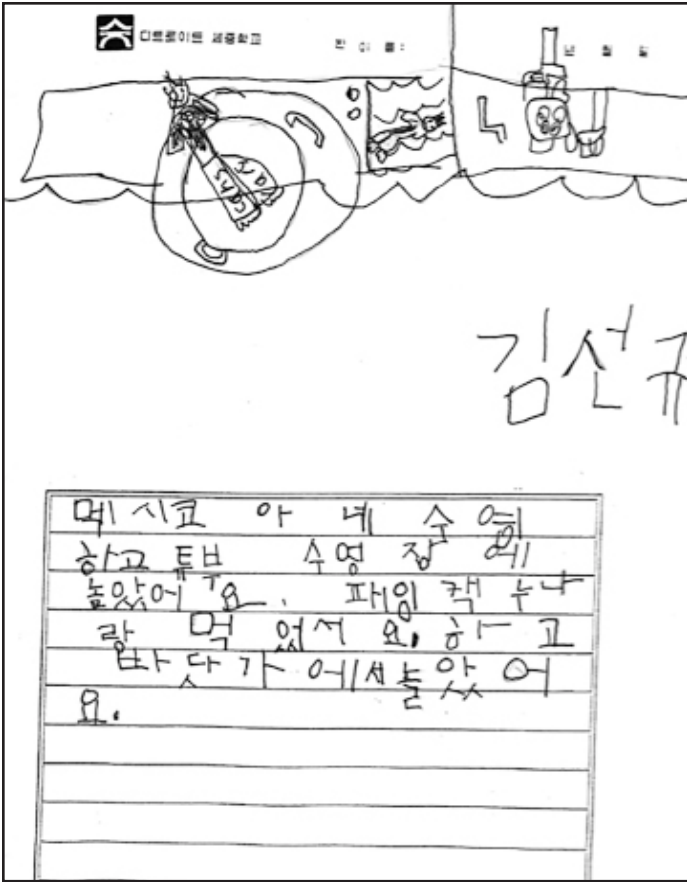 디트로이트 세종학교 반 이 름 :
년 월 일
김선규
멕시코 아 네 수영
하고 튜부 수영 장 에
놀았어 요. 패잉 캑 누나
랑 먹 었서 요. 하 고
바닷가 에서 놀았 어
요.